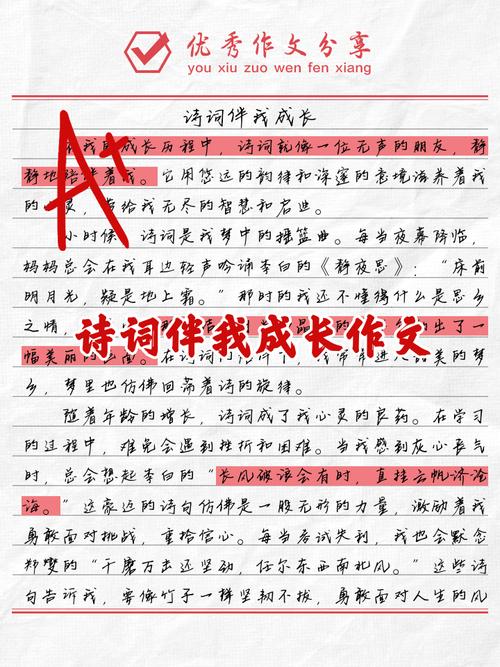 优秀作文分享
you xiu zuo wen fen xiang
诗词伴我成长
A+
我的成长历程中，诗词就像一位无声的朋友，静
静地陪伴着我。它用悠远的韵律和深邃的意境滋养着我
的心灵，带给我无尽的智慧和启迪。
小时候，诗词是我梦中的摇篮曲。每当夜幕降临，
妈妈总会在我耳边轻声吟诵李白的《静夜思》：“床前
明月光，疑是地上霜。”那时的我还不懂得什么是思乡
之情，
的
出了一
诗词伴我成长作文
幅美丽的画面。在诗词的
进入甜美的梦
乡，梦里也仿佛回荡着诗的旋律。
随着年龄的增长，诗词成了我心灵的良药。在学习
的过程中，难免会遇到挫折和困难。当我感到灰心丧气
时，总会想起李白的“长风破浪会有时，直挂云帆济沧
海。”这豪迈的诗句仿佛是一股无形的力量，激励着我
勇敢面对挑战，重拾信心。每当考试失利，我也会默念
郑燮的“千磨万击还坚劲，任尔东西南北风。”这些诗
句告诉我，要像竹子一样坚韧不拔，勇敢面对人生的风